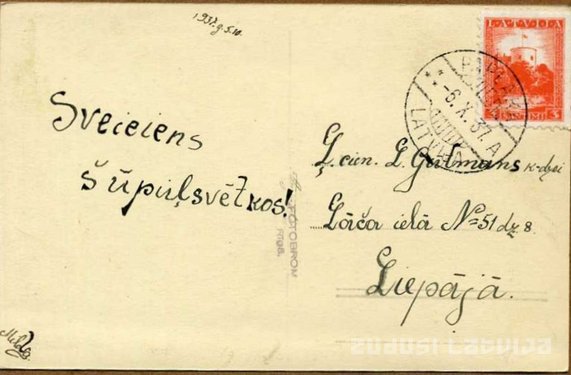 1937.g.5.10.
LATVIJA
3
-6.X.37.A
LATVIJA
Sveiciens
šūpuļsvētkos!
Ļ. cien. L. Gutmans k-dzei
Lāča ielā No 51 dz 8.
Liepājā.
FOTOBROM
RĪGA.
Milda
zudusi Latvija